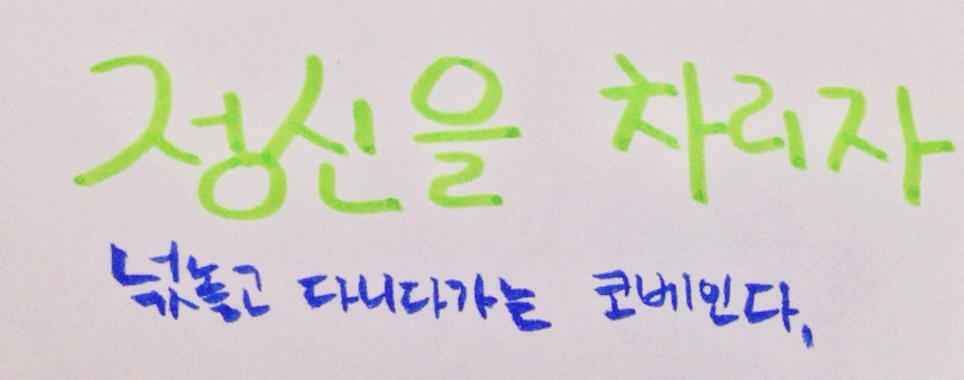 정신을 차리자
넋놓고 다니다가는 코베인다,